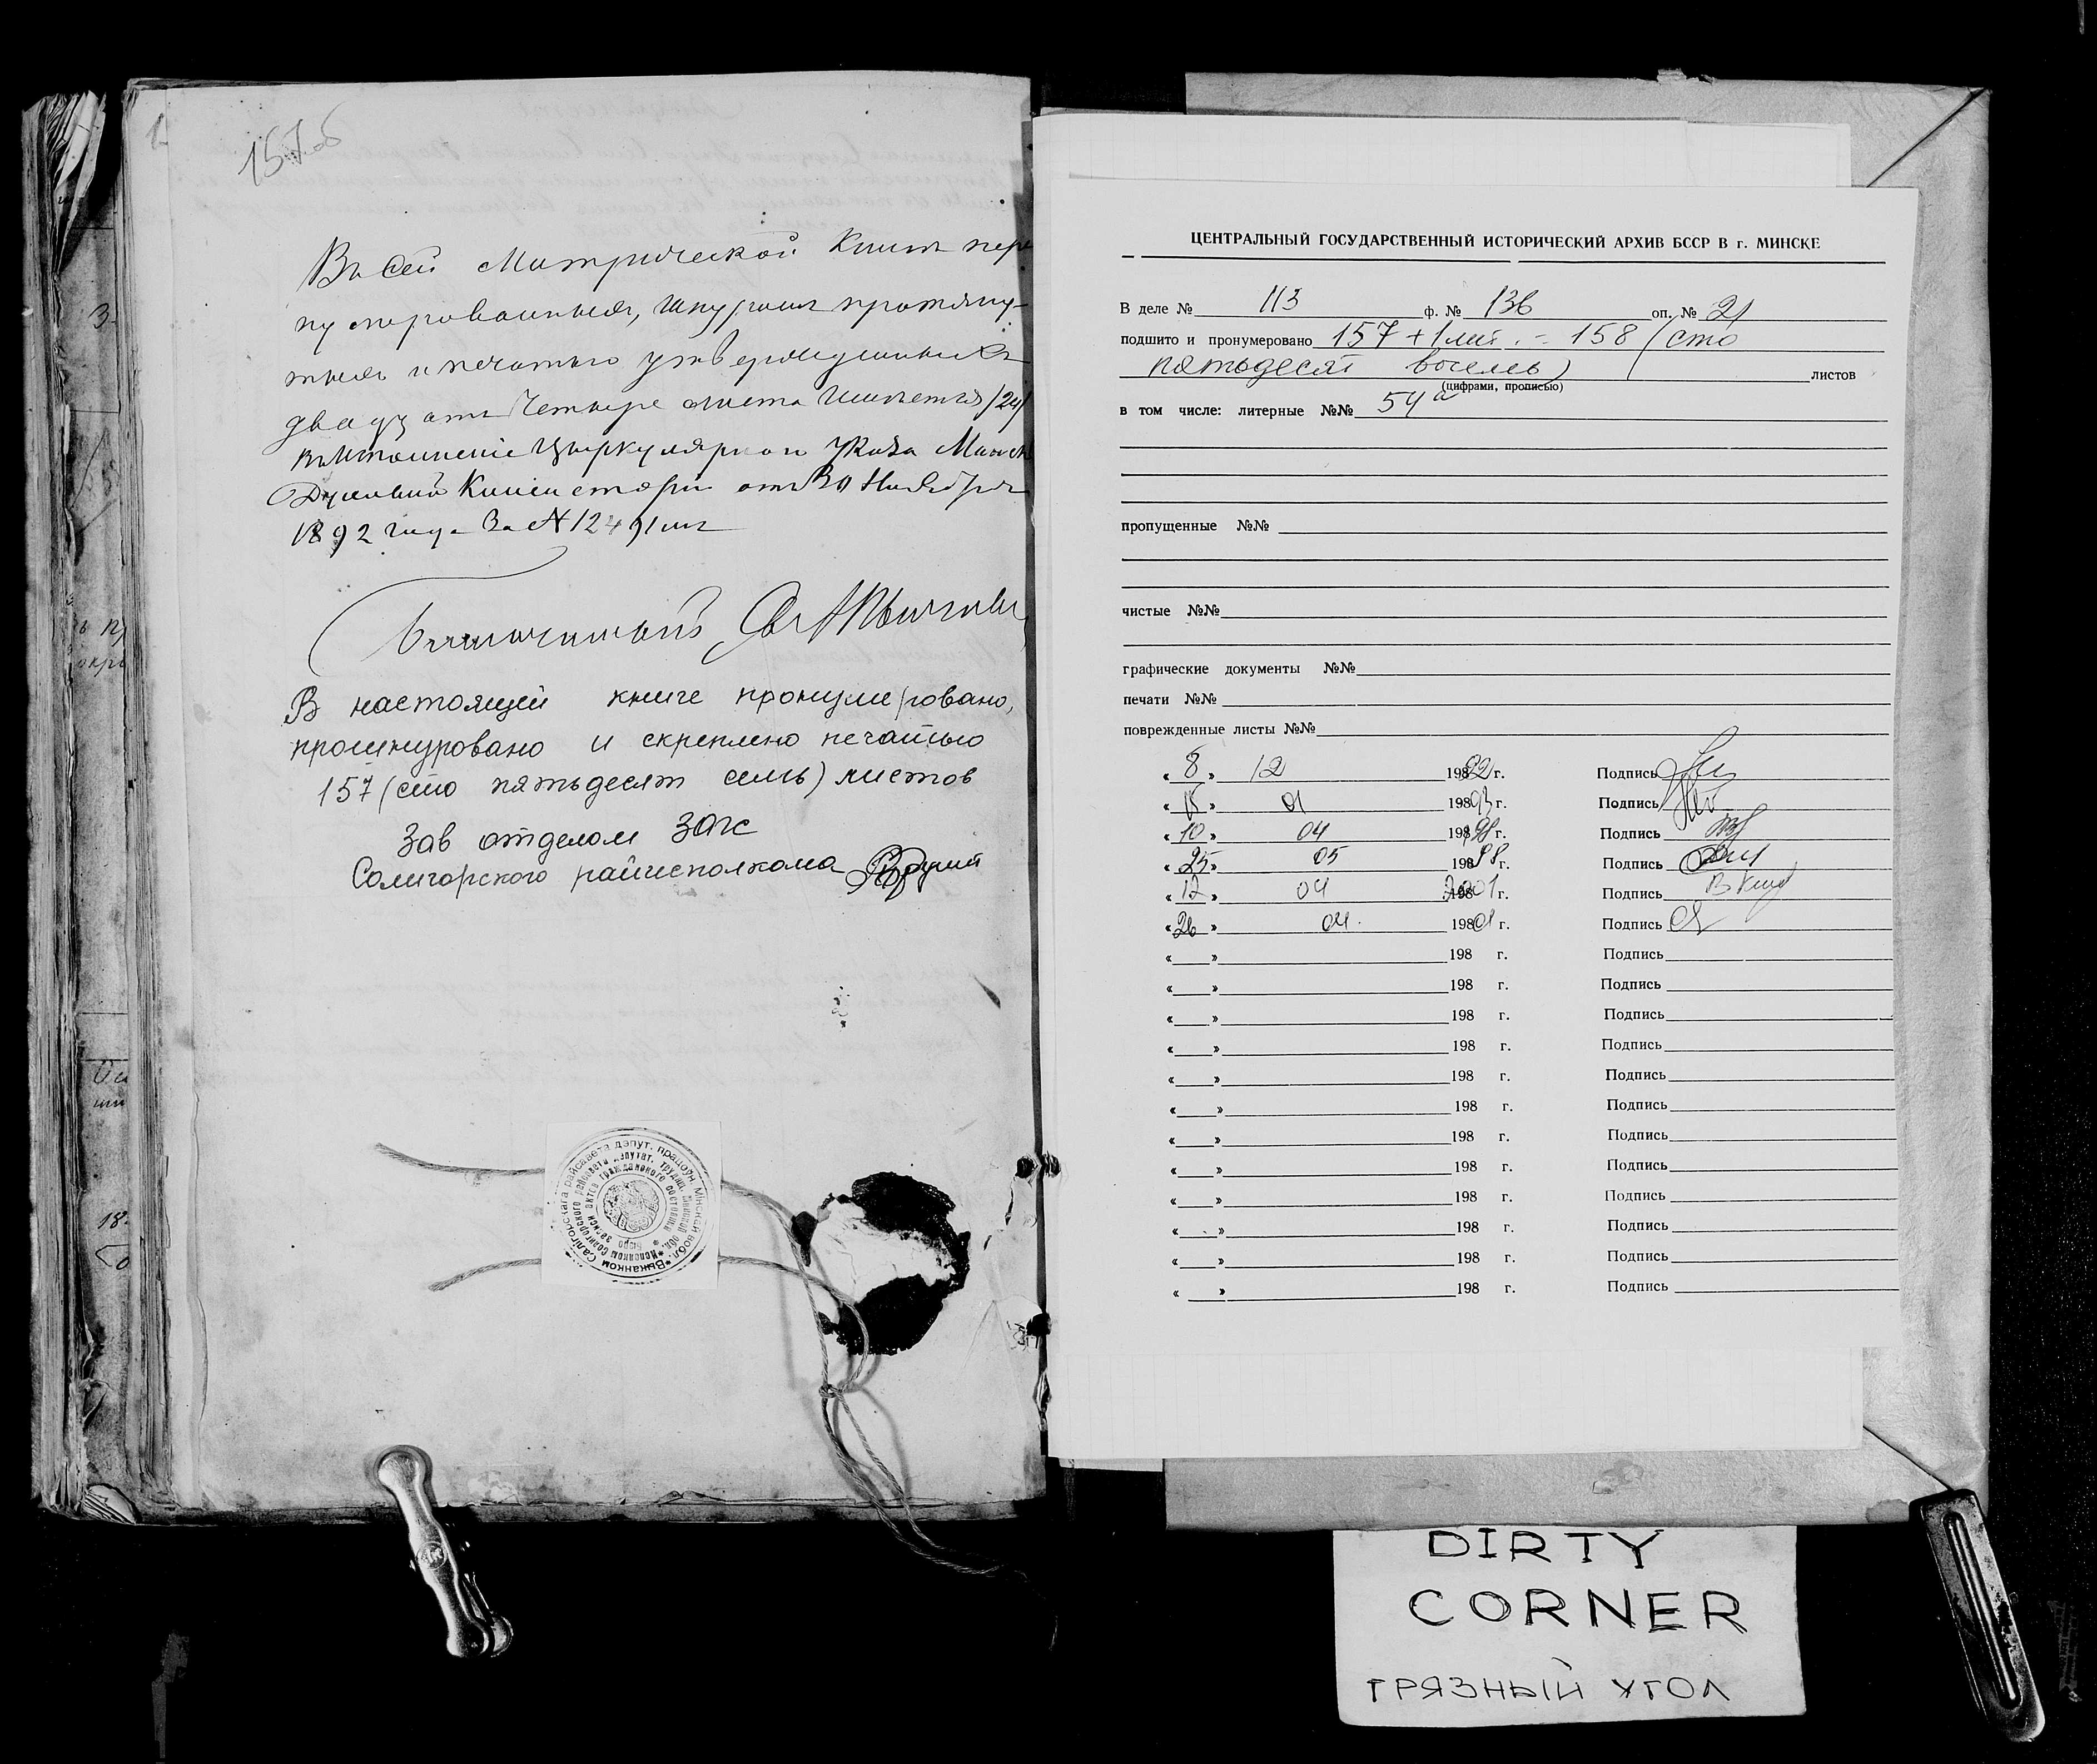 157об
Въ сей Метрической Книгѣ пере
нумерованныхъ, шнуромъ протяну-
тыхъ и печатью утвержденныхъ
двадцать четыре листа имѣется /24/
Указа
Духовной Консисторіи отъ 30 Ноября
1892 года За №
Благочинный
В настоящей книге пронумеровано,
прошнуровано и скреплено печатью
157 (сто пятьдесят семь) листов
Зав отделом ЗАГС
Солигорского райисполкома
ЦЕНТРАЛЬНЫЙ ГОСУДАРСТВЕННЫЙ ИСТОРИЧЕСКИЙ АРХИВ БССР В г. МИНСКЕ
В деле № 113 ф. № 136 оп. № 21
подшито и пронумеровано 157 + 1 лит. = 158 (сто
пятьдесят восемь) листов
(цифрами, прописью)
в том числе: литерные №№ 54а
пропущенные №№
чистые №№
графические документы №№
печати №№
поврежденные листы №№
« 8 » 12 198 92 г. Подпись
« » 01 198 93 г. Подпись
« 10 » 04 198 98 г. Подпись
« 25 » 05 198 98 г. Подпись
« 12 » 04 2001 г. Подпись
« 26 » 04. 198 01 г. Подпись
« » 198 г. Подпись
« » 198 г. Подпись
« » 198 г. Подпись
« » 198 г. Подпись
« » 198 г. Подпись
« » 198 г. Подпись
« » 198 г. Подпись
« » 198 г. Подпись
« » 198 г. Подпись
« » 198 г. Подпись
« » 198 г. Подпись
« » 198 г. Подпись
DIRTY
CORNER
ГРЯЗНЫЙ УГОЛ